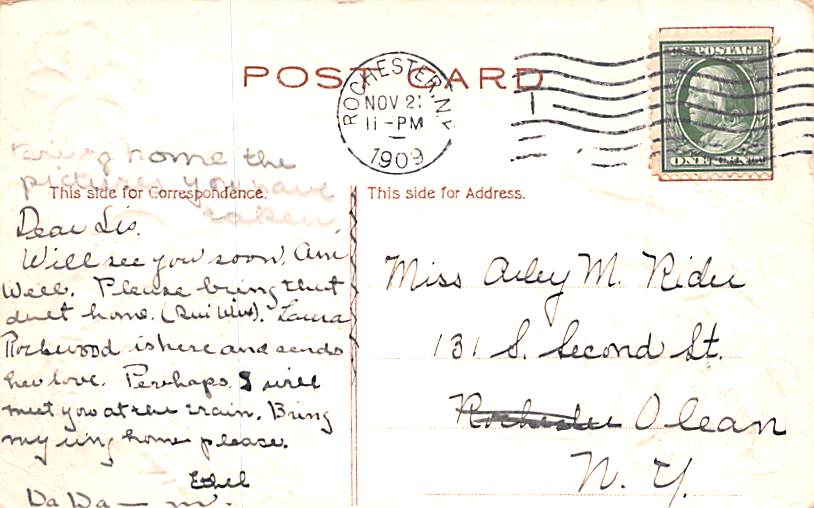 POST CARD
ROCHESTER, N.Y.
NOV 2
11-PM
1909
U.S. POSTAGE
ONE CENT
bring home the
pictures you have
taken.
This side for Correspondence.
This side for Address.
Dear Sis,
Will see you soon. Am
well. Please bring that
duet home. (Qui Vive). Laura
Rockwood is here and sends
her love. Perhaps I will
meet you at the train. Bring
my ring home please.
Ethel
Da Da — m.
Miss Arley M. Rider
131 S. Second St.
Rochester Olean
N. Y.